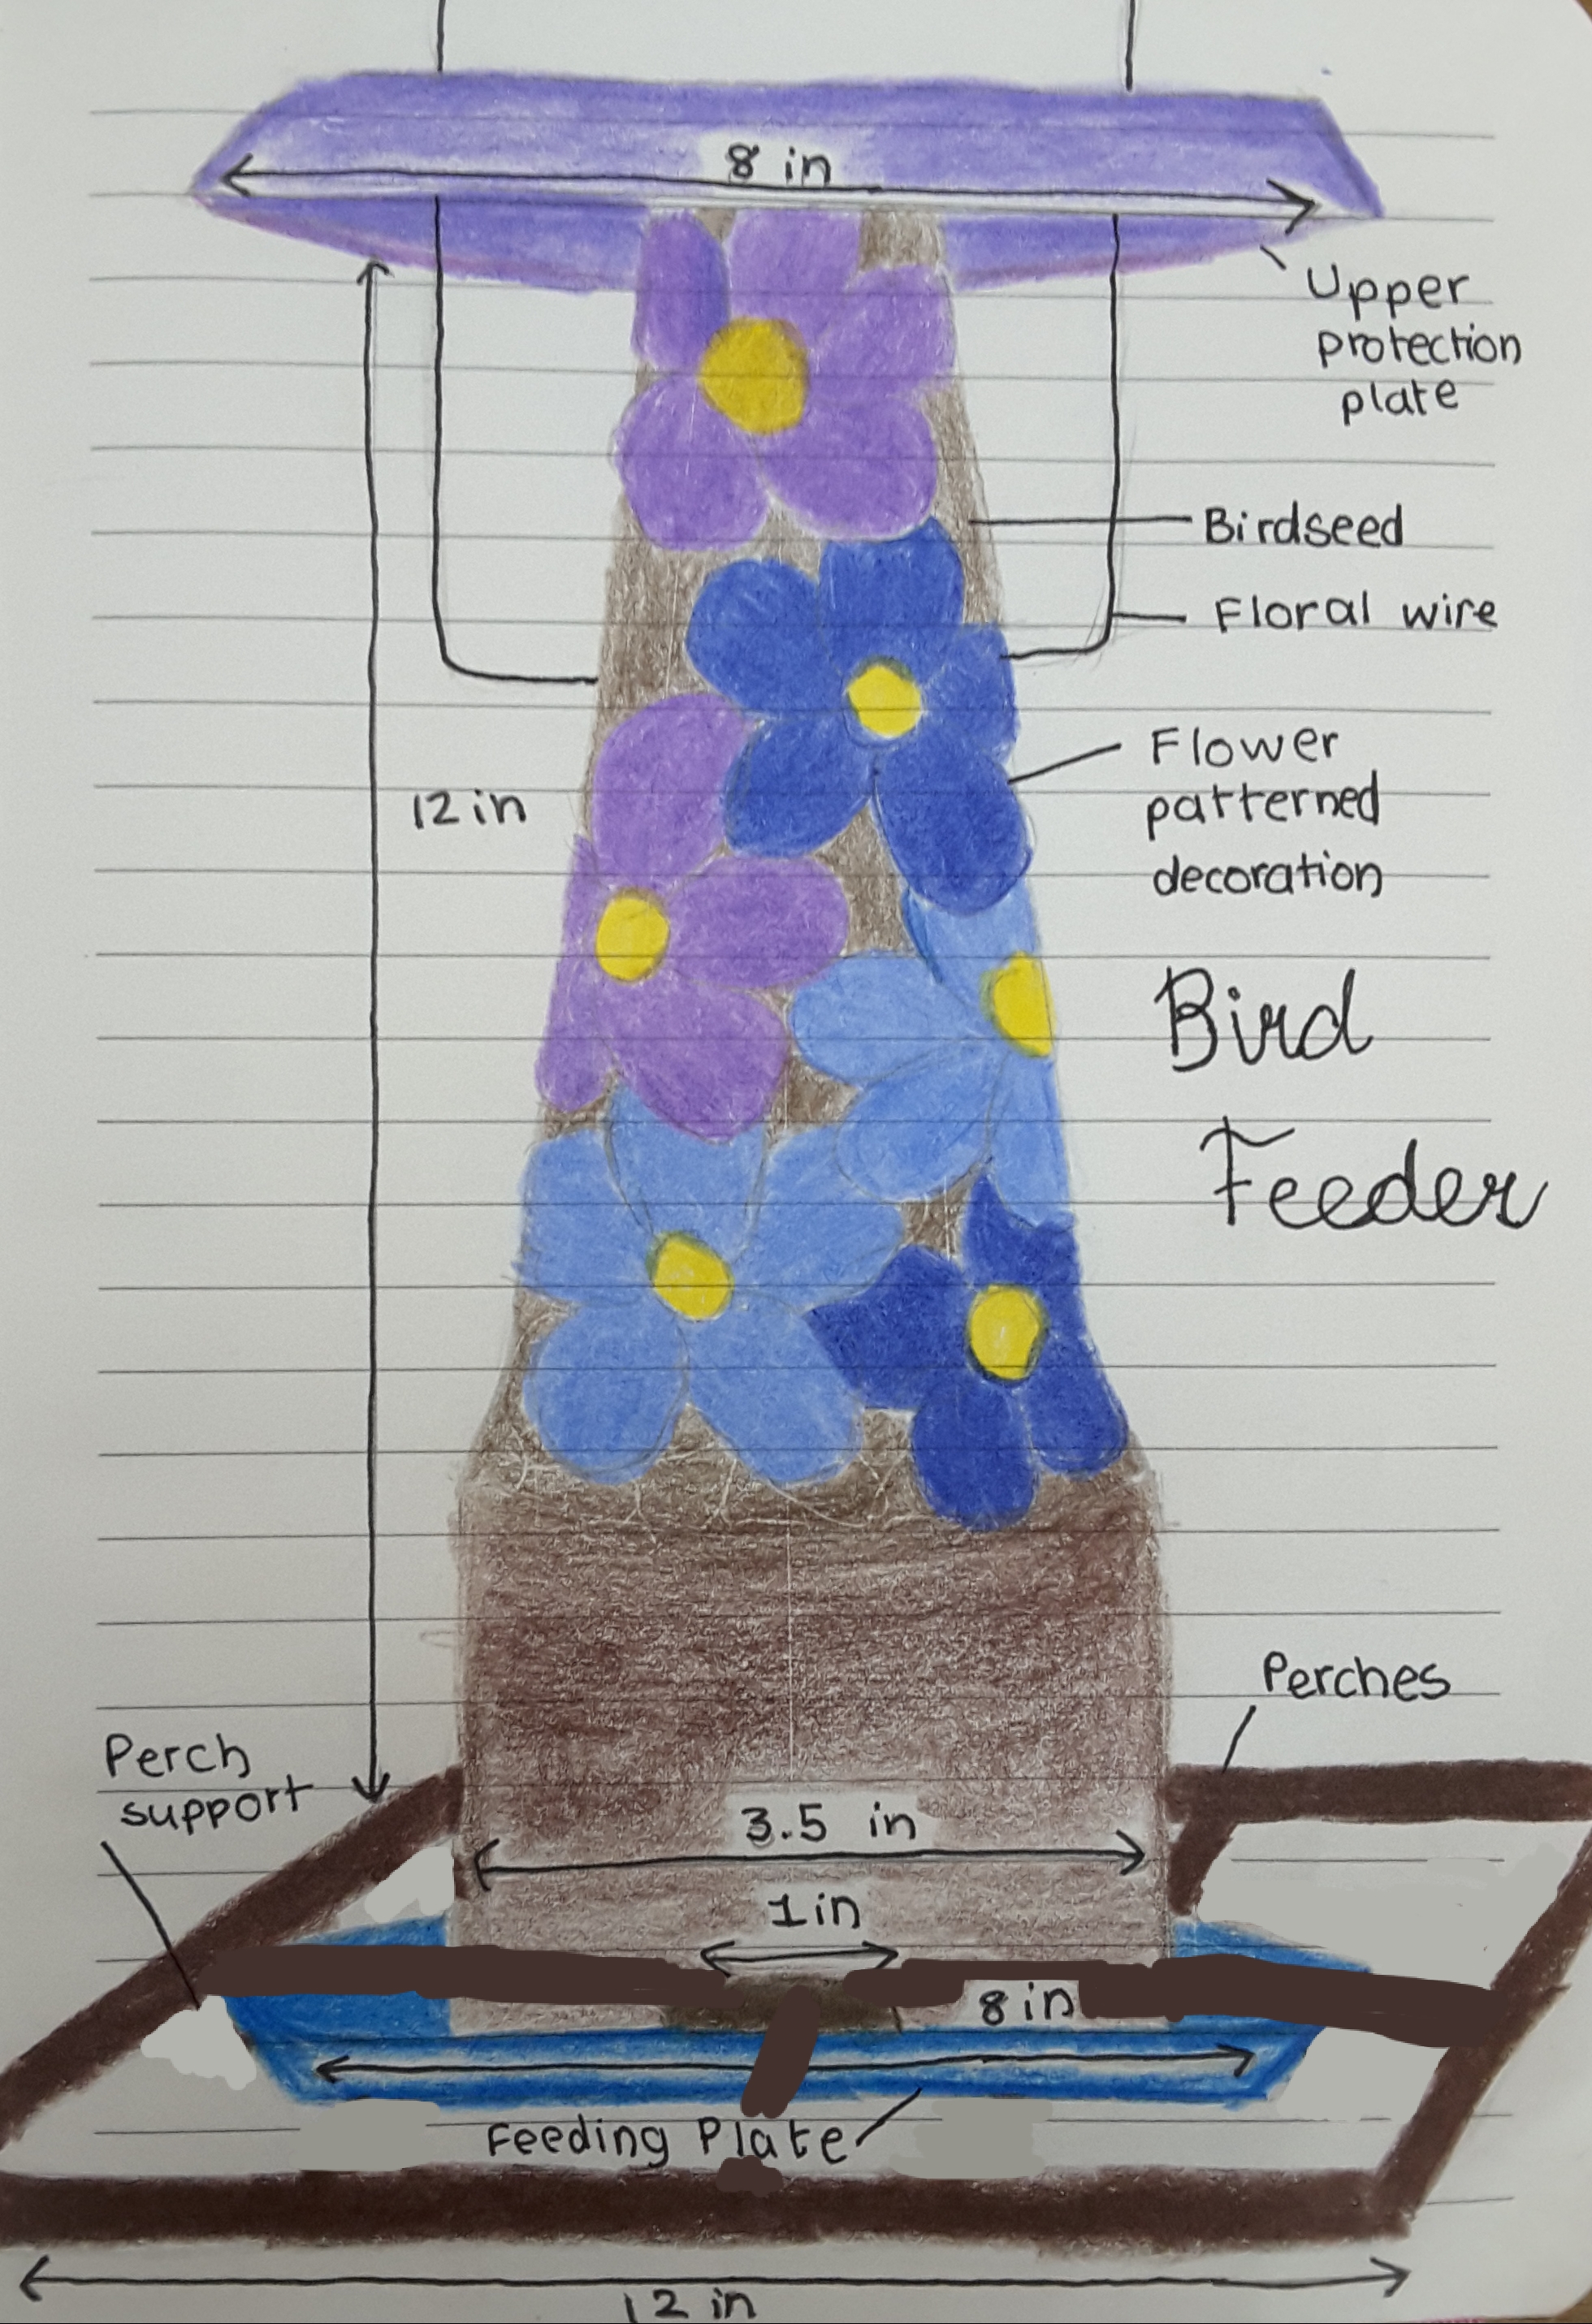 8 in
Upper
protection
plate
Birdseed
Floral wire
Flower
patterned
decoration
12 in
Bird
Feeder
Perches
Perch
support
3.5 in
1 in
8 in
Feeding Plate
12 in